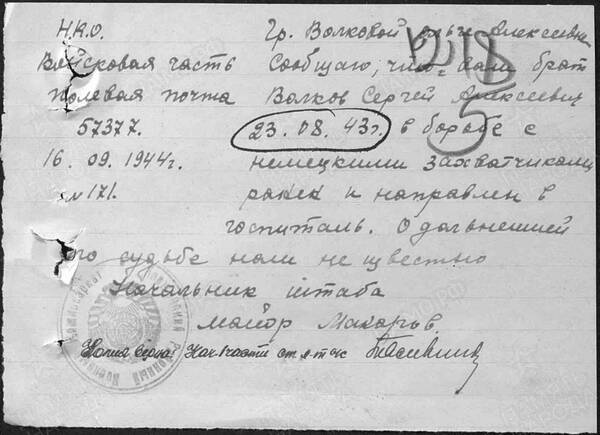 Н.К.О.
Войсковая часть
Полевая почта
57377.
16.09.1944г.
№ 171.
Гр. Волковой Ольге Алексеевне
Сообщаю, что ваш брат
Волков Сергей Алексеевич
23.08.43г. в борьбе с
немецкими захватчиками
ранен и направлен в
госпиталь. О дальнейшей
его судьбе нам не известно
Начальник штаба
майор Макаров.
Копия верна: Нач. 1 части ст. л-т
1218
5